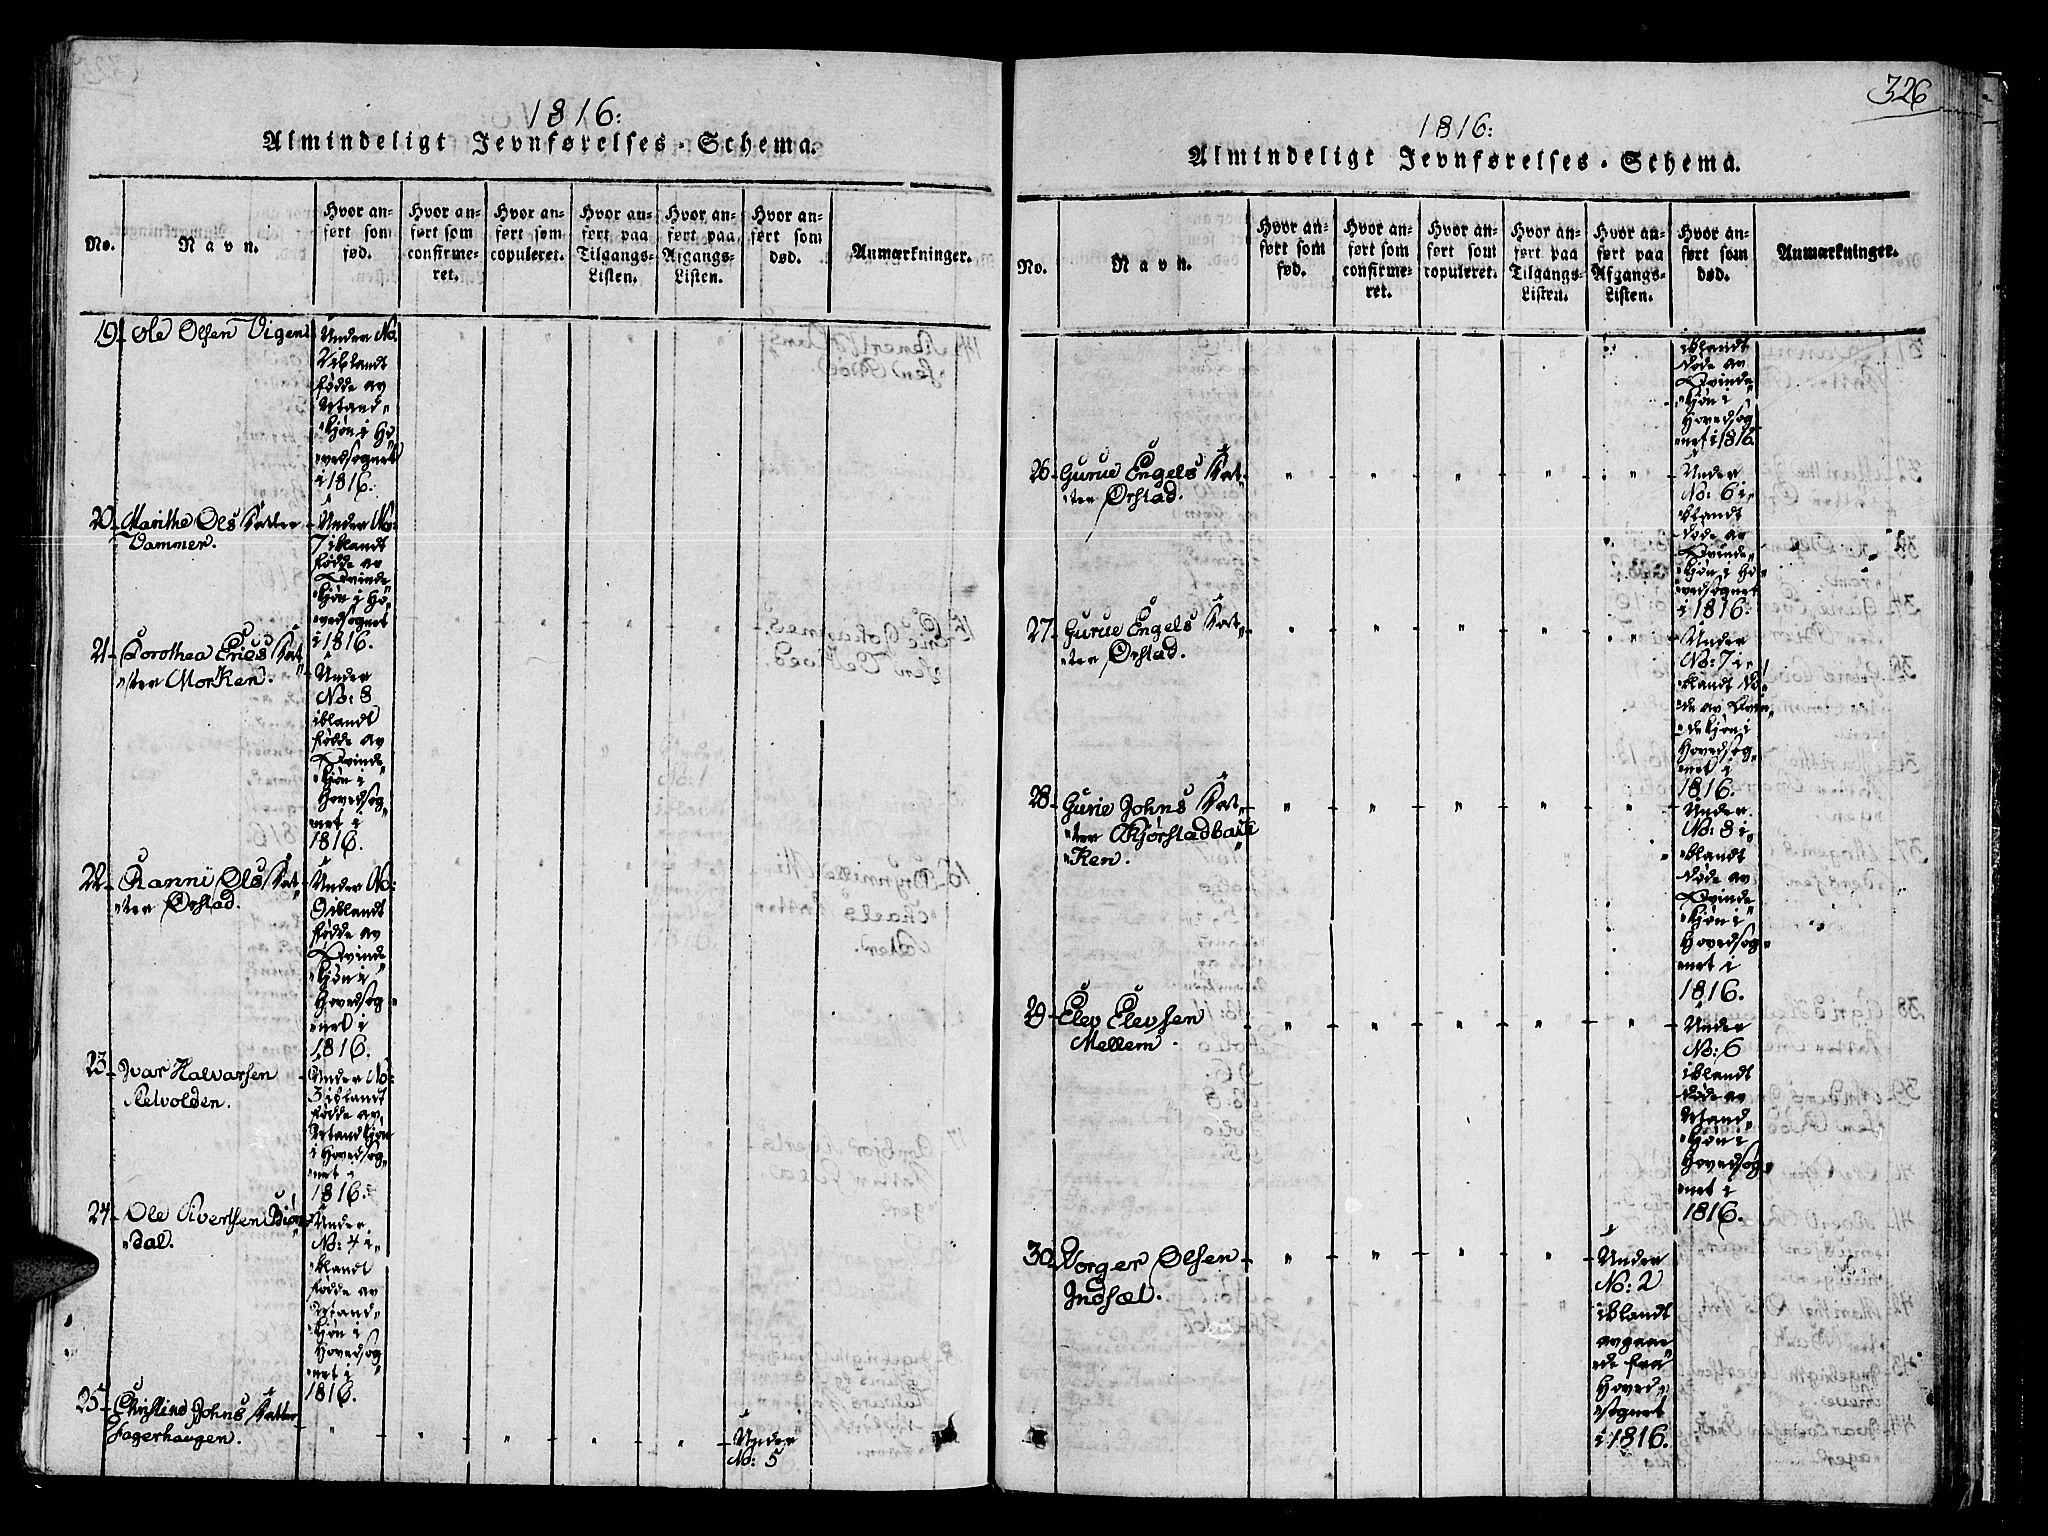 1816:
Almindeligt Jevnførelses-Schema.
No.
Navn.
Hvor an-
ført som
fød.
Hvor an-
ført som
confirme-
ret.
Hvor an-
ført som
copuleret.
Hvor an-
ført paa
Tilgangs-
Listen.
Hvor an-
ført paa
Afgangs-
Listen.
Hvor an-
ført som
død.
Anmærkninger.
19. Ole Olsen Vigens
Under No.
2 iblandt
fødde av
Mand„
„kjøn i Ho„
„vedsognet
i 1816.
20. Marithe Ols Datter
Vammer.
Under No:
7 iblandt
fødde av
Qvinde
„kjøn i Ho„
„vedsognet
i 1816.
21. Dorothea Erics Dat„
„ter Morken.
Under
No: 8
iblandt
fødde av
Qvinde„
„kjøn i
Hovedsog„
„net i
1816.
22. Ranni Ols Dat„
„ter Ørstad.
Under No:
9 iblandt
fødde av
Qvinde„
„kjøn i
Hovedsog„
„net i
1816.
23. Ivar Halvorsen
Selvolden.
Under No:
3 iblandt
fødde av
Mandkjøn
i Hovedsog„
„net i
1816.
24. Ole Sivertsen
„dal.
Under
No: 4 i„
„blandt
fødde av
Mand„
„kjøn i
Hovedsog„
„net i
1816.
25. Christine Johns Datter
Fagerhaugen.
Under
No: 5
326
1816:
Almindeligt Jevnførelses-Schema.
No.
Navn.
Hvor an-
ført som
fød.
Hvor an-
ført som
confirme-
ret.
Hvor an-
ført som
copuleret.
Hvor an-
ført paa
Tilgangs-
Listen.
Hvor an-
ført paa
Afgangs-
Listen.
Hvor an-
ført som
død.
Anmærkninger.
iblandt
døde av
Qvinde„
„kjøn i
Hovedsog„
„net i 1816.
26. Gurue Engels Dat„
„ter Ørstad.
Under
No: 6 i„
„blandt
døde av
Qvinde„
„kjøn i Ho„
„vedsognet
i 1816.
27. Gurue Engels Dat„
„ter Ørstad.
Under
No: 7 i„
„blandt dø„
„de av Qvin„
„dekjøn i
Hovedsog„
„net i
1816.
28. Gurie Johns Dat„
„ter Skjørstadbak
„ken.
Under
No: 8 i„
„blandt
døde av
Qvinde„
„kjøn i
Hovedsog„
„net i
1816.
29. Elev Elevsen
Mellem.
Under
No: 6
iblandt
døde av
Mand„
„kjøn i
Hovedsog„
„net i
1816.
30. Olsen
Indsæt.
Under
No: 2
iblandt
avgaae„
„de fra
Hoved„
„sognet
i 1816.